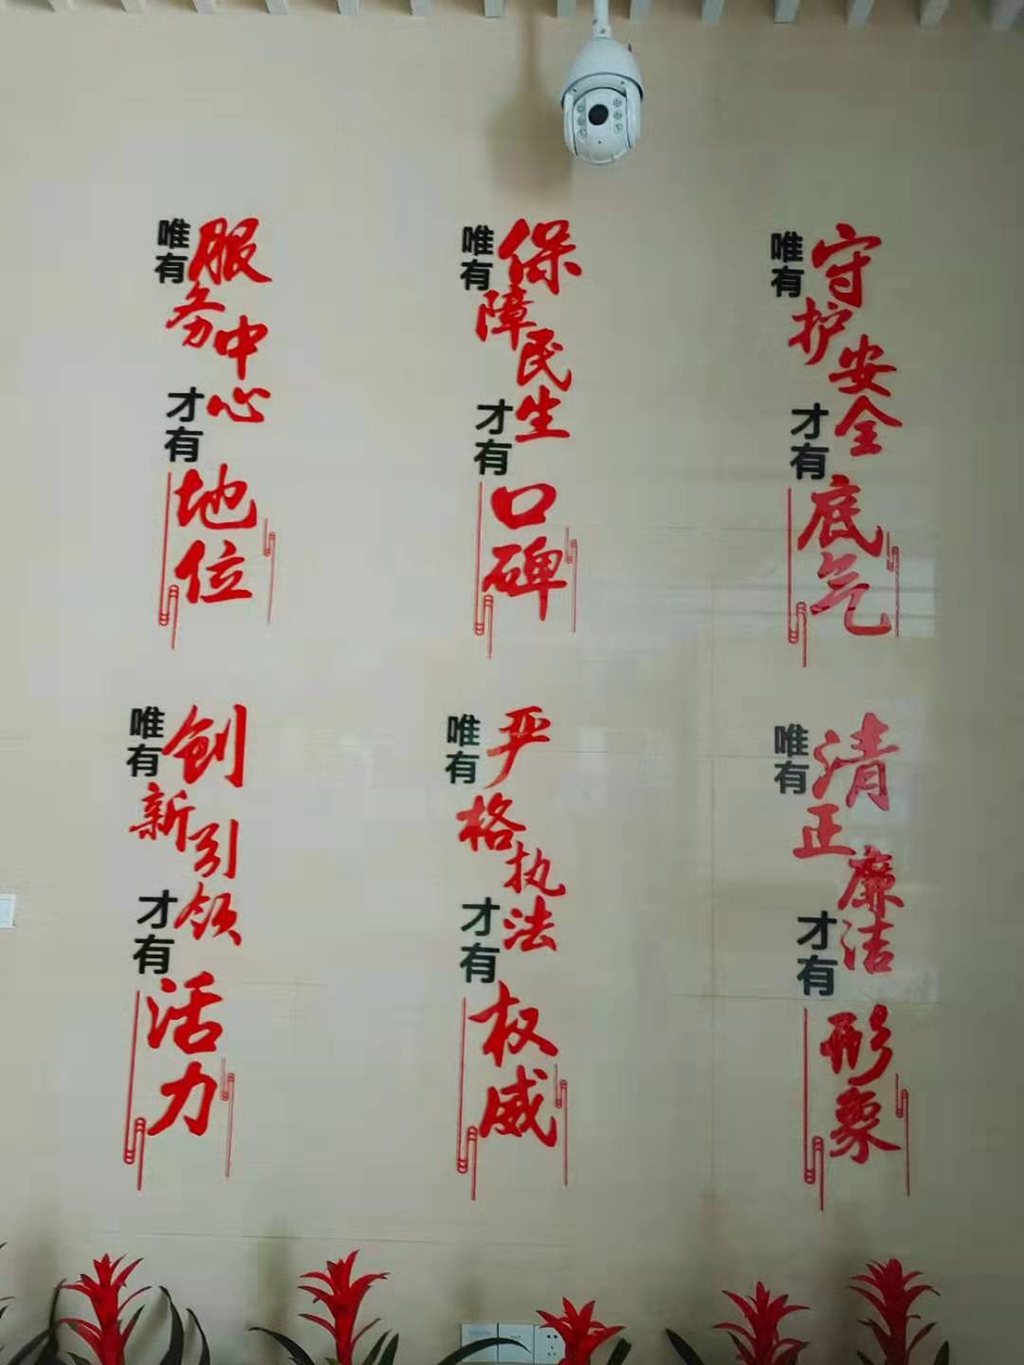 唯有服务中心才有地位
唯有保障民生才有口碑
唯有守护安全才有底气
唯有创新引领才有活力
唯有严格执法才有权威
唯有清正廉洁才有形象